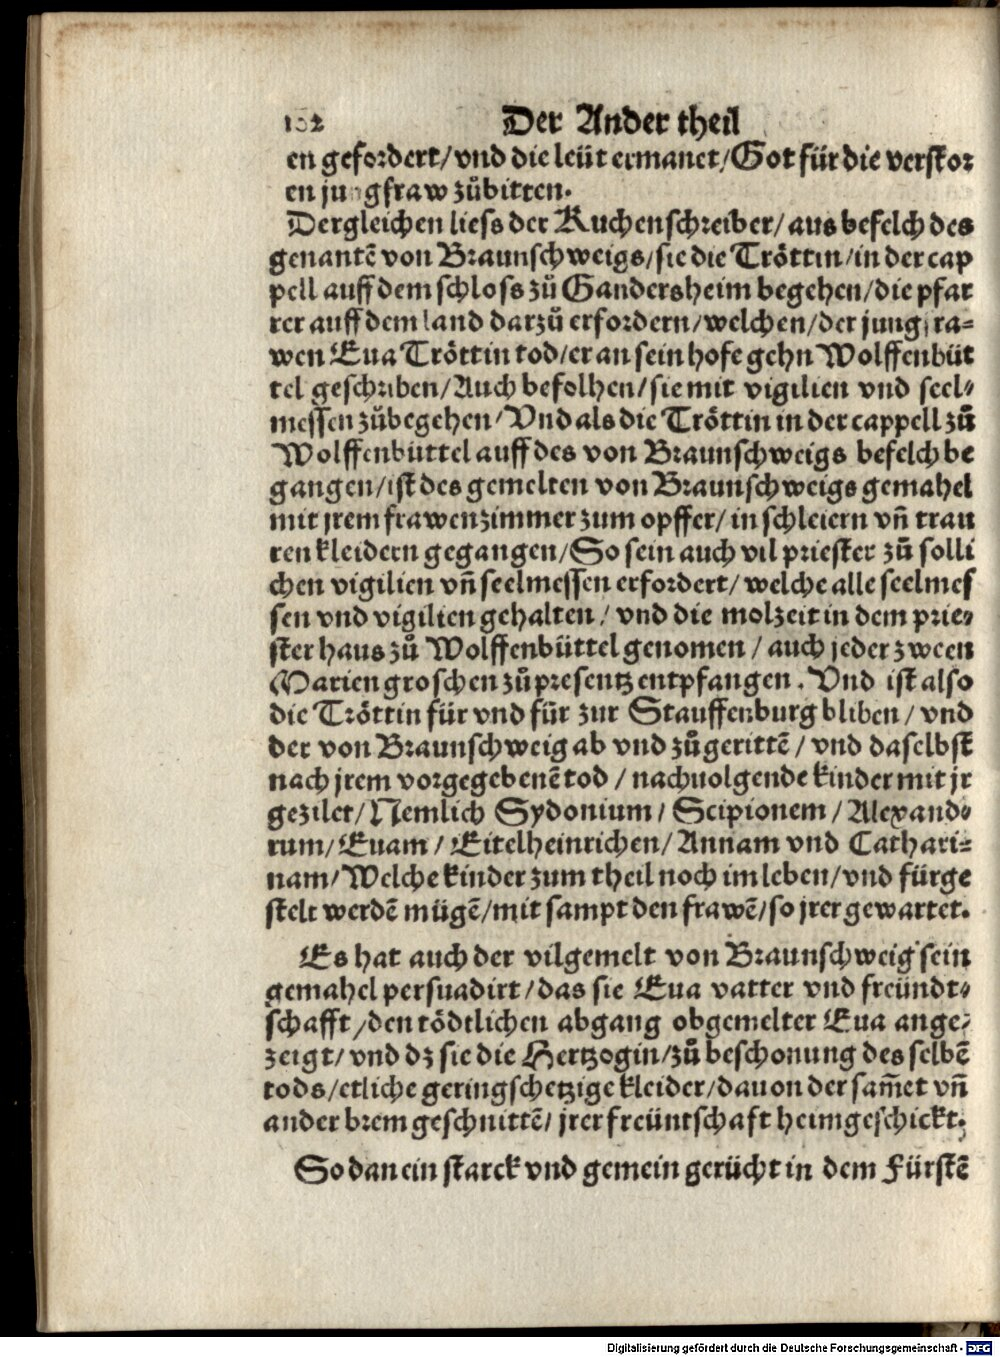 132 Der Ander theil
en gefordert/vnd die leüt ermanet/Got für die verstor
en jungfraw zůbitten.
Dergleichen liess der Kuchenschreiber/aus befelch des
genantē von Braunschweigs/sie die Tröttin/in der cap
pell auff dem schloss zů Gandersheim begehen/die pfar
rer auff dem land darzů erfordern/welchen/der jungfra⸗
wen Eua Tröttin tod/er an sein hofe gehn Wolffenbüt
tel geschriben/Auch befolhen/sie mit vigilien vnd seel⸗
messen zůbegehen/Vnd als die Tröttin in der cappell zů
Wolffenbüttel auff des von Braunschweigs befelch be
gangen/ist des gemelten von Braunschweigs gemahel
mit jrem frawenzimmer zum opffer/in schleiern vn̄ trau
ren kleidern gegangen/So sein auch vil priester zů solli
chen vigilien vn̄ seelmessen erfordert/welche alle seelmes
sen vnd vigilien gehalten/vnd die molzeit in dem prie⸗
ster haus zů Wolffenbüttel genomen/auch jeder zween
Mariengroschen zů presentz entpfangen. Vnd ist also
die Tröttin für vnd für zur Stauffenburg bliben/vnd
der von Braunschweig ab vnd zů gerittē/vnd daselbst
nach jrem vorgegebenē tod/nachuolgende kinder mit jr
gezilet/Nemlich Sydonium/Scipionem/Alexand⸗
rum/Euam/Eitelheinrichen/Annam vnd Cathari⸗
nam/Welche kinder zum theil noch im leben/vnd fürge
stelt werdē mügē/mit sampt den frawē/so jrer gewartet.
Es hat auch der vilgemelt von Braunschweig sein
gemahel persuadirt/das sie Eua vatter vnd freündt⸗
schafft/den tödtlichen abgang obgemelter Eua ange⸗
zeigt/vnd dz sie die Hertzogin/zů beschonung des selbē
tods/etliche geringschetzige kleider/dauon der sam̄et vn̄
ander brem geschnittē/jrer freüntschaft heimgeschickt.
So dan ein starck vnd gemein gerücht in dem Fürstē
Digitalisierung gefördert durch die Deutsche Forschungsgemeinschaft - DFG